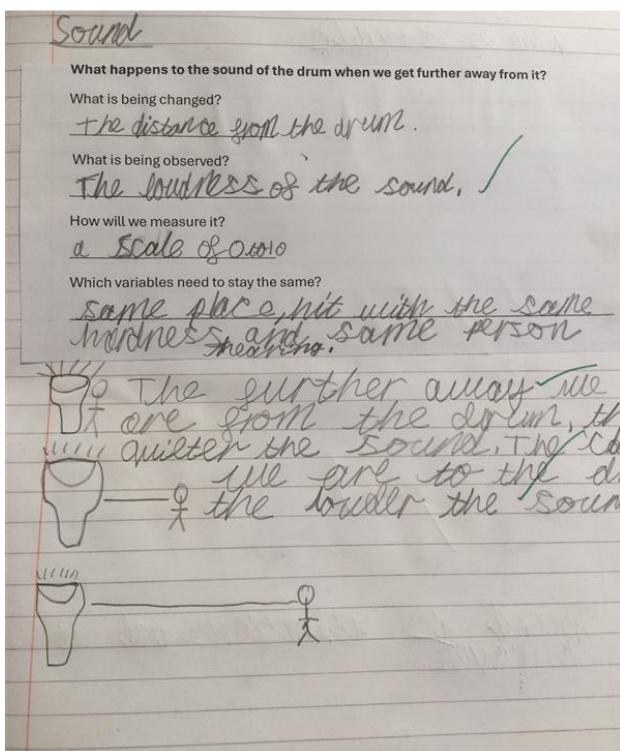 Sound
What happens to the sound of the drum when we get further away from it?
What is being changed?
The distance from the drum.
What is being observed?
The loudness of the sound.
How will we measure it?
a scale of 0 to 10
Which variables need to stay the same?
same place, hit with the same
hardness and same person
hearing.
The further away we
are from the drum, th
quieter the sound. The
we are to the d
the louder the soun